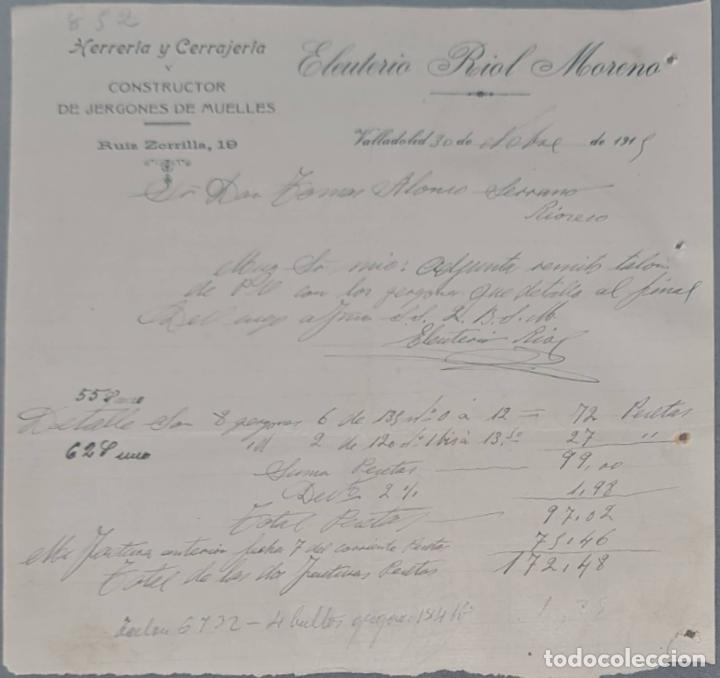 852
Herrería y Cerrajería
Y
CONSTRUCTOR
DE JERGONES DE MUELLES
Ruiz Zorrilla, 19
Eleuterio Riol Moreno
Valladolid 30 de Octubre de 1915
Sr Don Tomas Alonso Serrano
Rioseco
Muy Sr mio: adjunto remito talon
de P.V con los gergones que detallo al final
De V. S. S. Q. B. S. M.
Eleuterio Riol
558 uno
Detalle Son 8 gergones 6 de 135 a 12 = 72 Pesetas
id 2 de 120 13,50 27 "
628 uno
Suma Pesetas 99,00
Deto 2% 1,98
Total Pesetas 97,02
Mi factura anterior fecha 7 del corriente Pesetas 75,46
Total de las dos facturas Pesetas 172,48
Talon 6732 - 4 bultos gergones 184 Ks
todocoleccion
todocoleccion.net